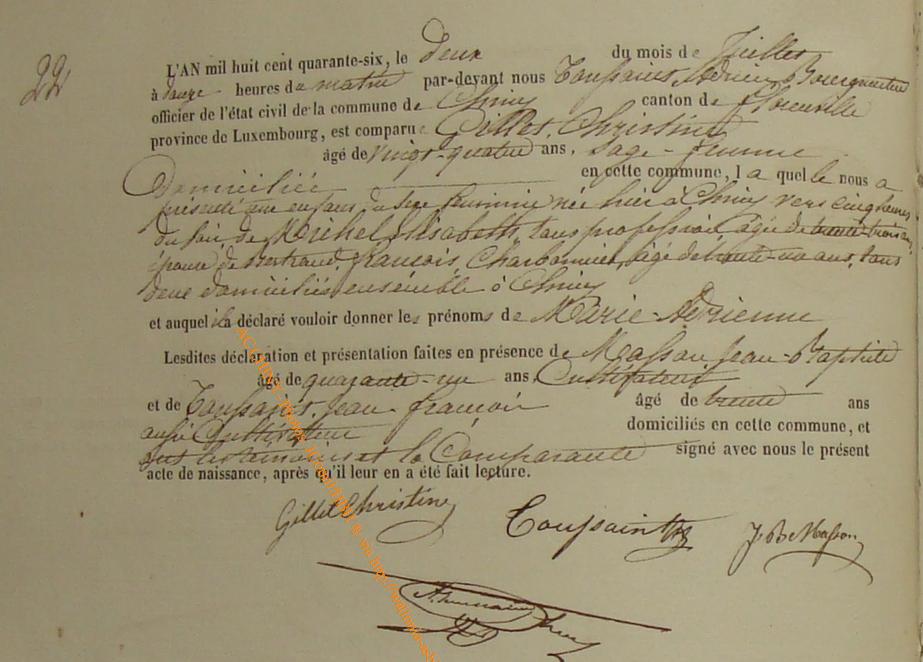 22
L'AN mil huit cent quarante-six, le deux du mois de Juillet
à douze heures du matin par-devant nous Toussaint, Adrien Bourgmestre
officier de l'état civil de la commune de Chiny canton de florenville
province de Luxembourg, est comparue Gillet, Christine
âgé de vingt-quatre ans, sage-femme
Domiciliée en cette commune, la quelle nous a
présenté une enfant du sexe féminin née hier à Chiny vers cinq heures
du soir, de Michel Elisabeth, sans profession, âgée de trente-trois ans
épouse de Bertrand, francois Charbonnier, âgé de trente-un ans, tous
deux domiciliés ensemble à Chiny
et auquel il a déclaré vouloir donner les prénoms de Marie-Adrienne
Lesdites déclaration et présentation faites en présence de Masson Jean-Baptiste
âgé de quarante-un ans, Cultivateur
et de Toussaint, Jean-francois âgé de trente ans
aussi Cultivateur domiciliés en cette commune, et
ont les témoins et la Comparante signé avec nous le présent
acte de naissance, après qu'il leur en a été fait lecture.
Gillet Christine Toussaint J. B. Masson